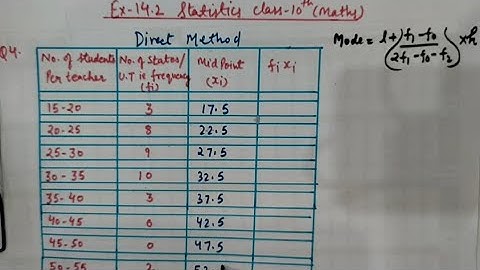 Ex-14.2 Statistics class-10th (Maths)
Direct Method
Mode = l + (f1 - f0 / 2f1 - f0 - f2) × h
Q4.
No. of students Per teacher | No. of States/ U.T is frequency (fi) | Mid Point (xi) | fi xi
15-20 3 17.5
20-25 8 22.5
25-30 9 27.5
30-35 10 32.5
35-40 3 37.5
40-45 0 42.5
45-50 0 47.5
50-55 2